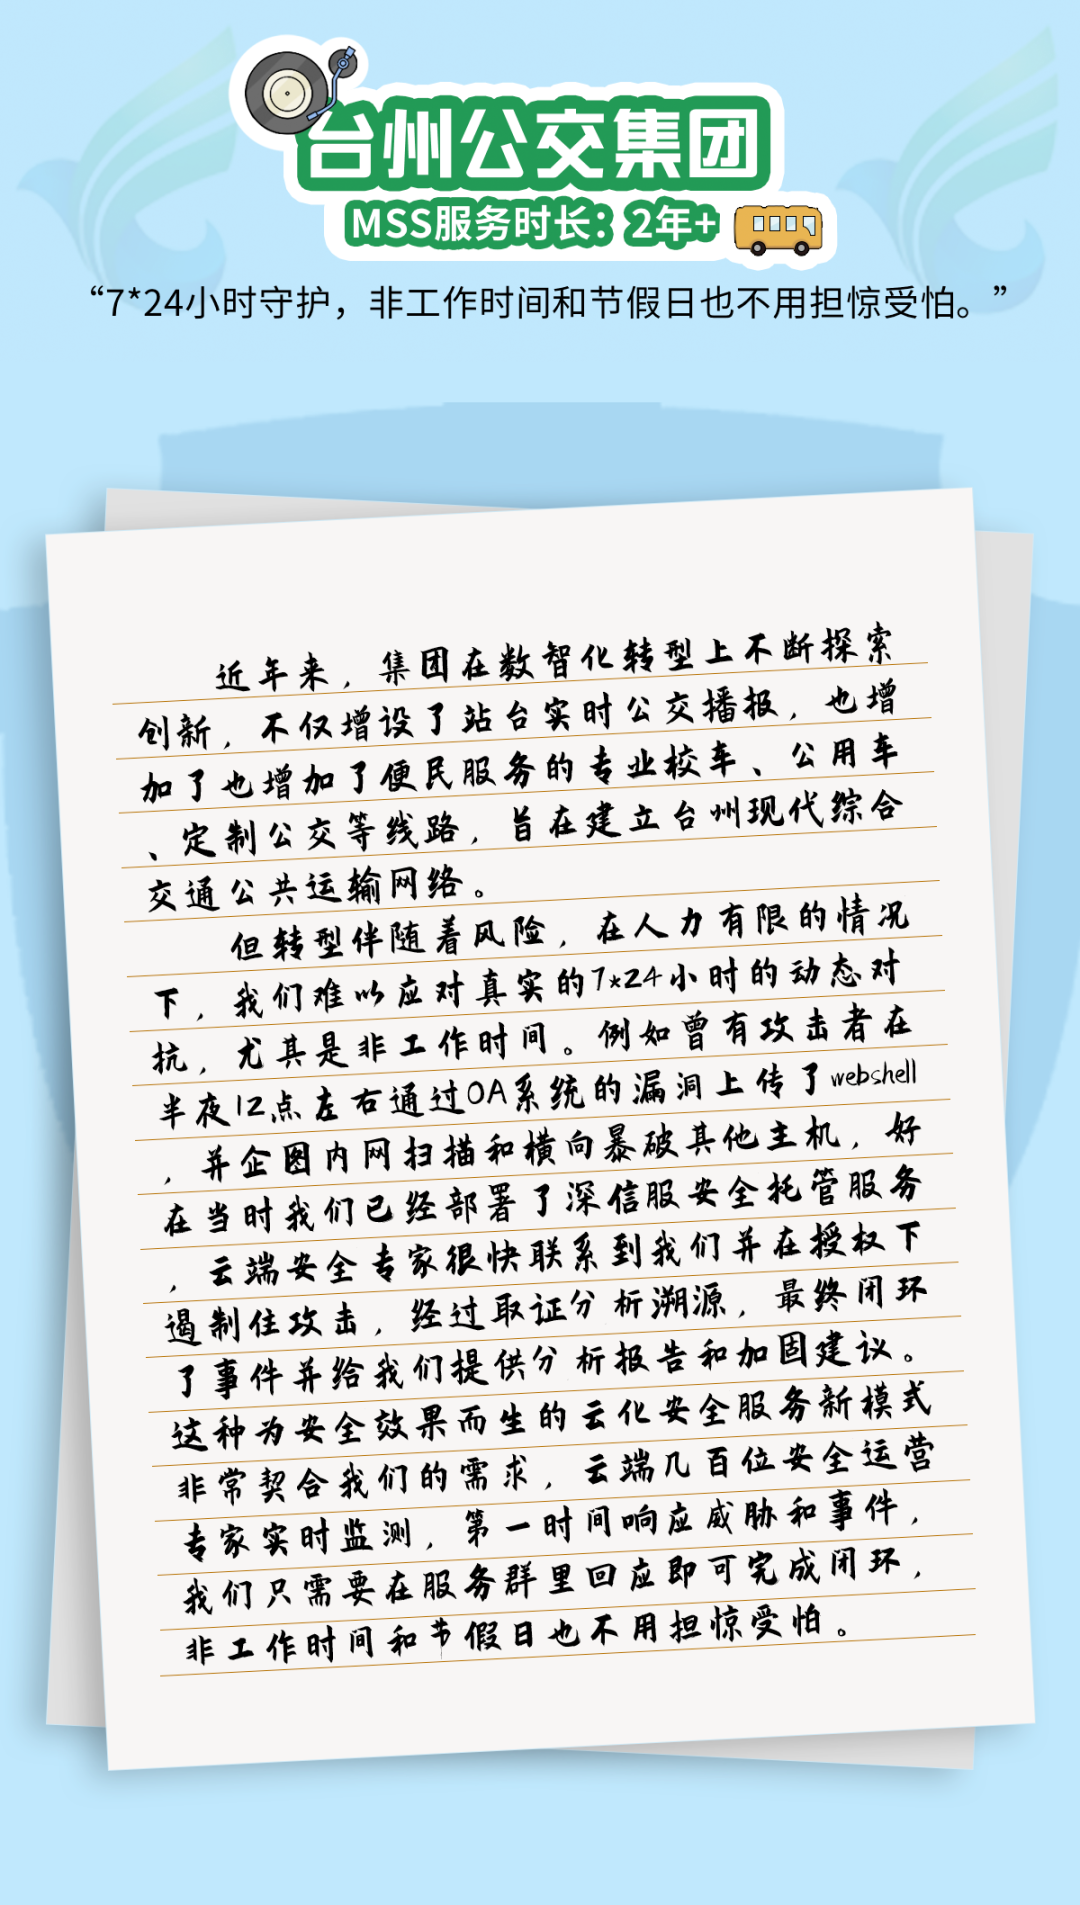 台州公交集团
MSS服务时长：2年+
“7*24小时守护，非工作时间和节假日也不用担惊受怕。”
近年来，集团在数智化转型上不断探索
创新，不仅增设了站台实时公交播报，也增
加了也增加了便民服务的专业校车、公用车
、定制公交等线路，旨在建立台州现代综合
交通公共运输网络。
但转型伴随着风险，在人力有限的情况
下，我们难以应对真实的7*24小时的动态对
抗，尤其是非工作时间。例如曾有攻击者在
半夜12点左右通过OA系统的漏洞上传了webshell
，并企图内网扫描和横向暴破其他主机，好
在当时我们已经部署了深信服安全托管服务
，云端安全专家很快联系到我们并在授权下
遏制住攻击，经过取证分析溯源，最终闭环
了事件并给我们提供分析报告和加固建议。
这种为安全效果而生的云化安全服务新模式
非常契合我们的需求，云端几百位安全运营
专家实时监测，第一时间响应威胁和事件，
我们只需要在服务群里回应即可完成闭环，
非工作时间和节假日也不用担惊受怕。